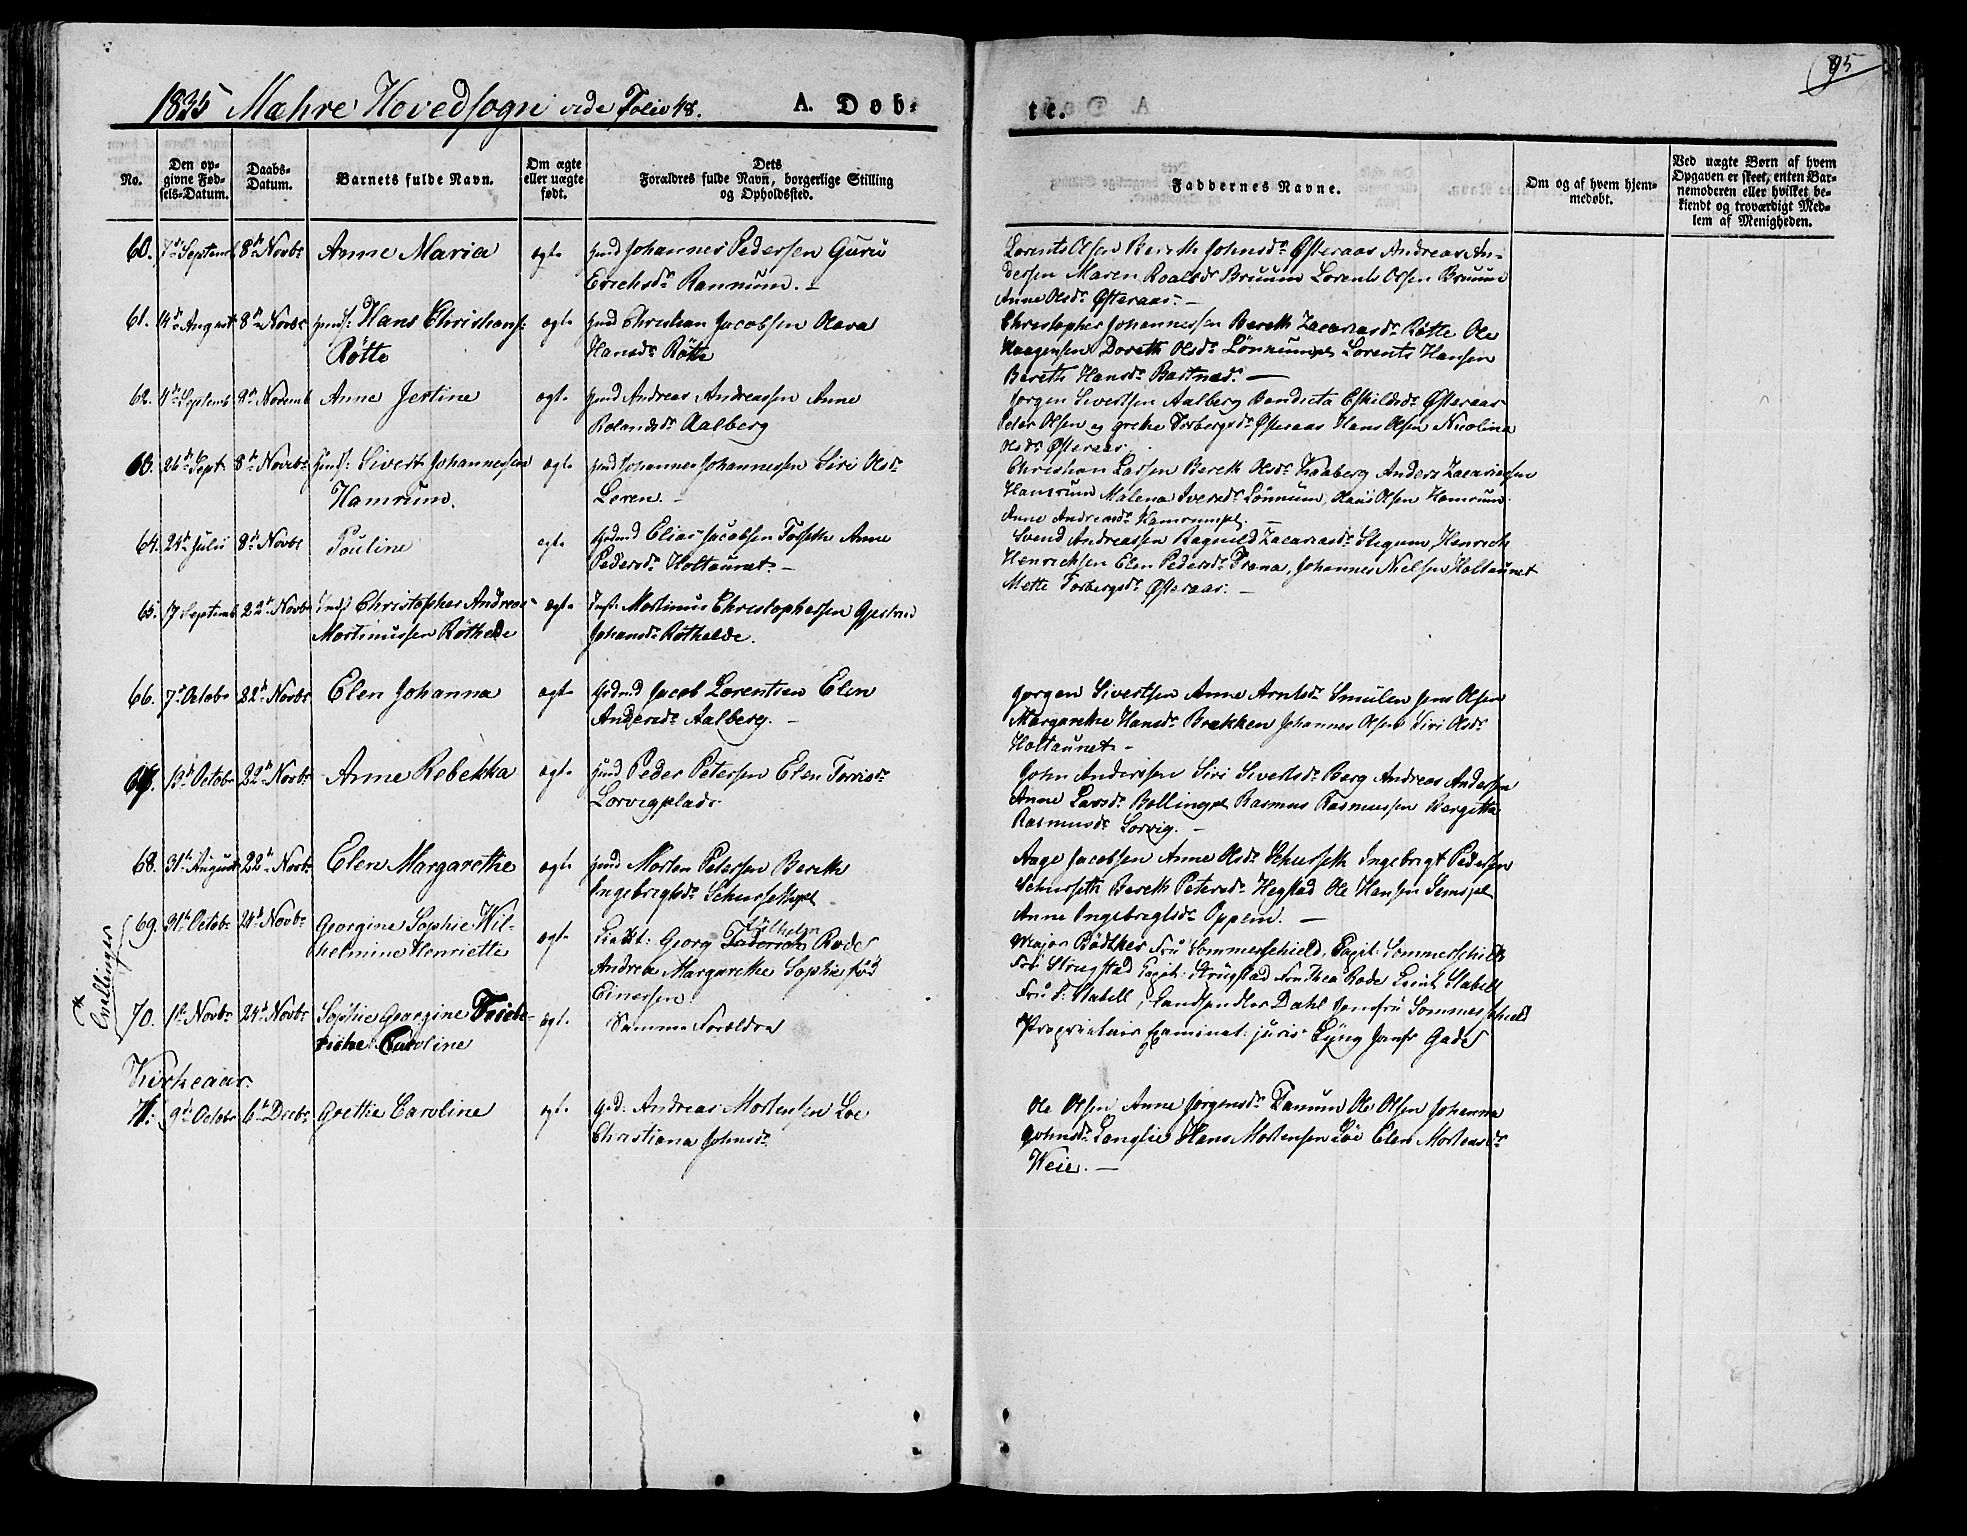 1835 Mæhre Hovedsogn vide Folio 48. A. Døb-
te.
95
No.
Den op-
givne Fød-
sels-Datum.
Daabs-
Datum.
Barnets fulde Navn.
Om ægte
eller uægte
født.
Dets
Forældres fulde Navn, borgerlige Stilling
og Opholdssted.
Faddernes Navne.
Om og af hvem hjem-
medøbt.
Ved uægte Børn af hvem
Opgaven er skeet, enten Bar-
nemoderen eller hvilket be-
kiendt og troværdigt Med-
lem af Menigheden.
60. 7de Septemb 8de Novbr Anne Maria ægt. Johannes Pedersen Guru
Erichsdr Rannum. —
Lorents Olsen Bereth Johnsdr Østeraas Andreas An-
dersen Maren Roaldsdr Bruum Lorents Olsen Bruum
Anne Olsdr Østeraas. —
61. 4de August 8de Novbr Hans Christians:
Røtte
ægt. Christian Jacobsen Olava
Hansdr Røtte
Christopher Johannessen Bereth Zacariasdr Røtte Ole
Haagensen Doreth Olsdr Lønnumpl Lorents Hansen
Bereth Hansdr Bastnæs. —
62. 4de Septemb 8de Novemb Anne Jertine ægt. Andreas Andreassen Anne
Rolandsdr Aalberg
Jørgen Sivertsen Aalberg Bendicta Eskildsdr Østeraas
Peter Olsen og Grethe Torbergsdr Østeraas Hans Olsen Nicolina
Olsdr Østeraas.
63. 26de Sept 8de Novbr Sivert Johannessen
Hamrum.
ægt. Johannes Johannessen Siri Olsdr
Leren. —
Christian Larsen Bereth Olsdr Kaaberg Anders Zacariassen
Hamrum Malena Iversdr Lønnum, Olaus Olsen Hamrum
Anne Andreasdr Hamrumpl. —
64. 24de Julii 8de Novbr Pouline ægt. Grdmd Elias Jacobsen Følseth Anne
Pedersdr Holtaunet. —
Svend Andreassen Ragnild Zacariasdr Stegum, Henrich
Henrichsen Elen Pedersdr Prana, Johannes Nielsen Holtaunet
Mette Torbergsdr Østeraas. —
65. 17 Septemb 22de Novbr Christopher Andreas
Mortinussen Røthelde
ægt. Inst. Mortinus Christophersen Gjertrud
Johansdr Røthelde.
66. 7de Octobr 22de Novbr Elen Johanna ægt. Grdmd Jacob Lorentsen Elen
Andersdr Aalberg. —
Jørgen Sivertsen Anne Arntsdr Smulen Jens Olsen
Margarethe Hansdr Brækken Johannes Olsen Siri Olsdr
Holtaunet. —
67. 13de Octobr 22de Novbr Anne Rebekka ægt. Peder Petersen Elen Torrisdr
Lorvigplads
John Andersen Siri Sivertsdr Berg Andreas Andersen
Anne Larsdr Bollingpl Rasmus Rasmussen Bergitta
Rasmusdr Lorvig. —
68. 31te August 22de Novbr Elen Margarethe ægt. Morten Petersen Bereth
Ingebrigtsdr Schursethpl
Aage Jacobsen Anne Olsdr Schurseth Ingebrigt Pedersen
Schurseth Bereth Petersdr Hegstad Ole Hansen Semspl
Anne Ingebrigtsdr Oppem. —
* Tvillinger
69. 31te Octobr 24de Novbr Georgine Sophie Wil-
helmine Henriette
ægt. Georg Friderich Vilhelm Rode
Andrea Margarethe Sophie fød
Einersen
Major Bødtker Fru Sommerschield, Capit. Sommerschield
Fru Strugstad Capit. Strugstad Fru Thea Rode Lieut. Stabell
70. 1te Novbr 24de Novbr Sophie Georgine Friede-
riche Caroline
ægt. Samme Forældre
Fru S. Stabell, Landhandler Dahl Jomfru Sommerschield
Proprietair Examinat. juris Lyng Jomfr Gade
Kirkeaar.
71. 9de Octobr 6te Decbr Grethe Caroline ægt. Grd. Andreas Mortensen Løe
Christiana Johnsdr
Ole Olsen Anne Jørgensdr Tanum Ole Olsen Johanna
Johnsdr Langlie Hans Mortensen Løe Elen Mortensdr
Weie. —